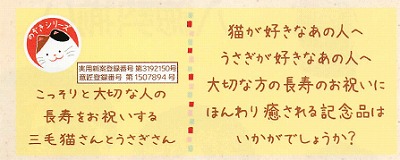 のぞきシリーズ
実用新案登録番号 第3192150号
意匠登録番号 第1507894号
こっそりと大切な人の
長寿をお祝いする
三毛猫さんとうさぎさん
猫が好きなあの人へ
うさぎが好きなあの人へ
大切な方の長寿のお祝いに
ほんわり癒される記念品は
いかがでしょうか?